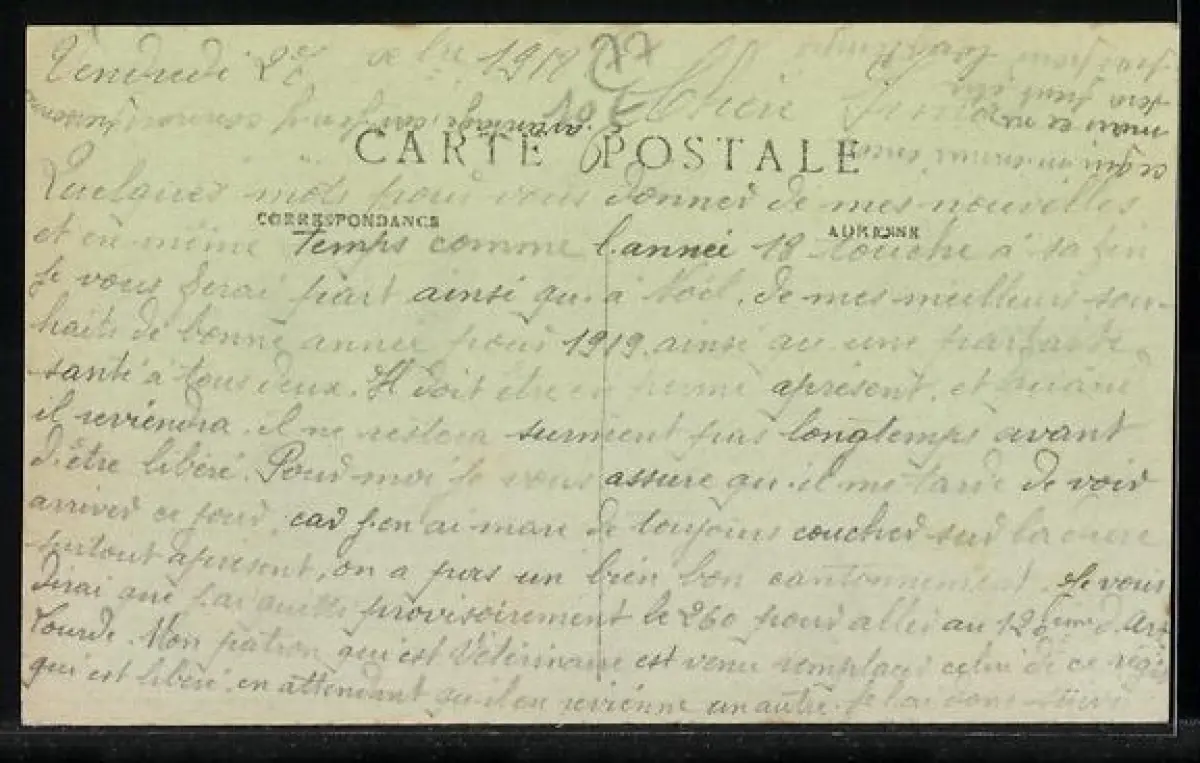 Vendredi
CARTE POSTALE
Quelques mots pour vous donner de mes nouvelles
CORRESPONDANCE
ADRESSE
et en même temps comme l'année 18 touche à sa fin
Je vous ferai part ainsi qu'à Noël, de mes meilleurs sou-
haits de bonne année pour 1919 ainsi que une parfaite
santé à tous deux. Il doit être en perme aprésent, et quand
il reviendra il ne restera surment pas longtemps avant
d'être libéré. Pour moi je vous assure qu'il me tarde de voir
arriver ce jour, car j'en ai mare de toujours coucher sur la dure
surtout apresent, on a pas un bien bon cantonnement. Je vous
dirai que j'ai quitté provisoirement le 260 pour aller au 120ème d'Art
Lourde. Mon patron qui est Vétérinaire est venu remplacer celui de ce régi
qui est libéré en attendant qu'il en revienne un autre. Je l'ai donc suivi